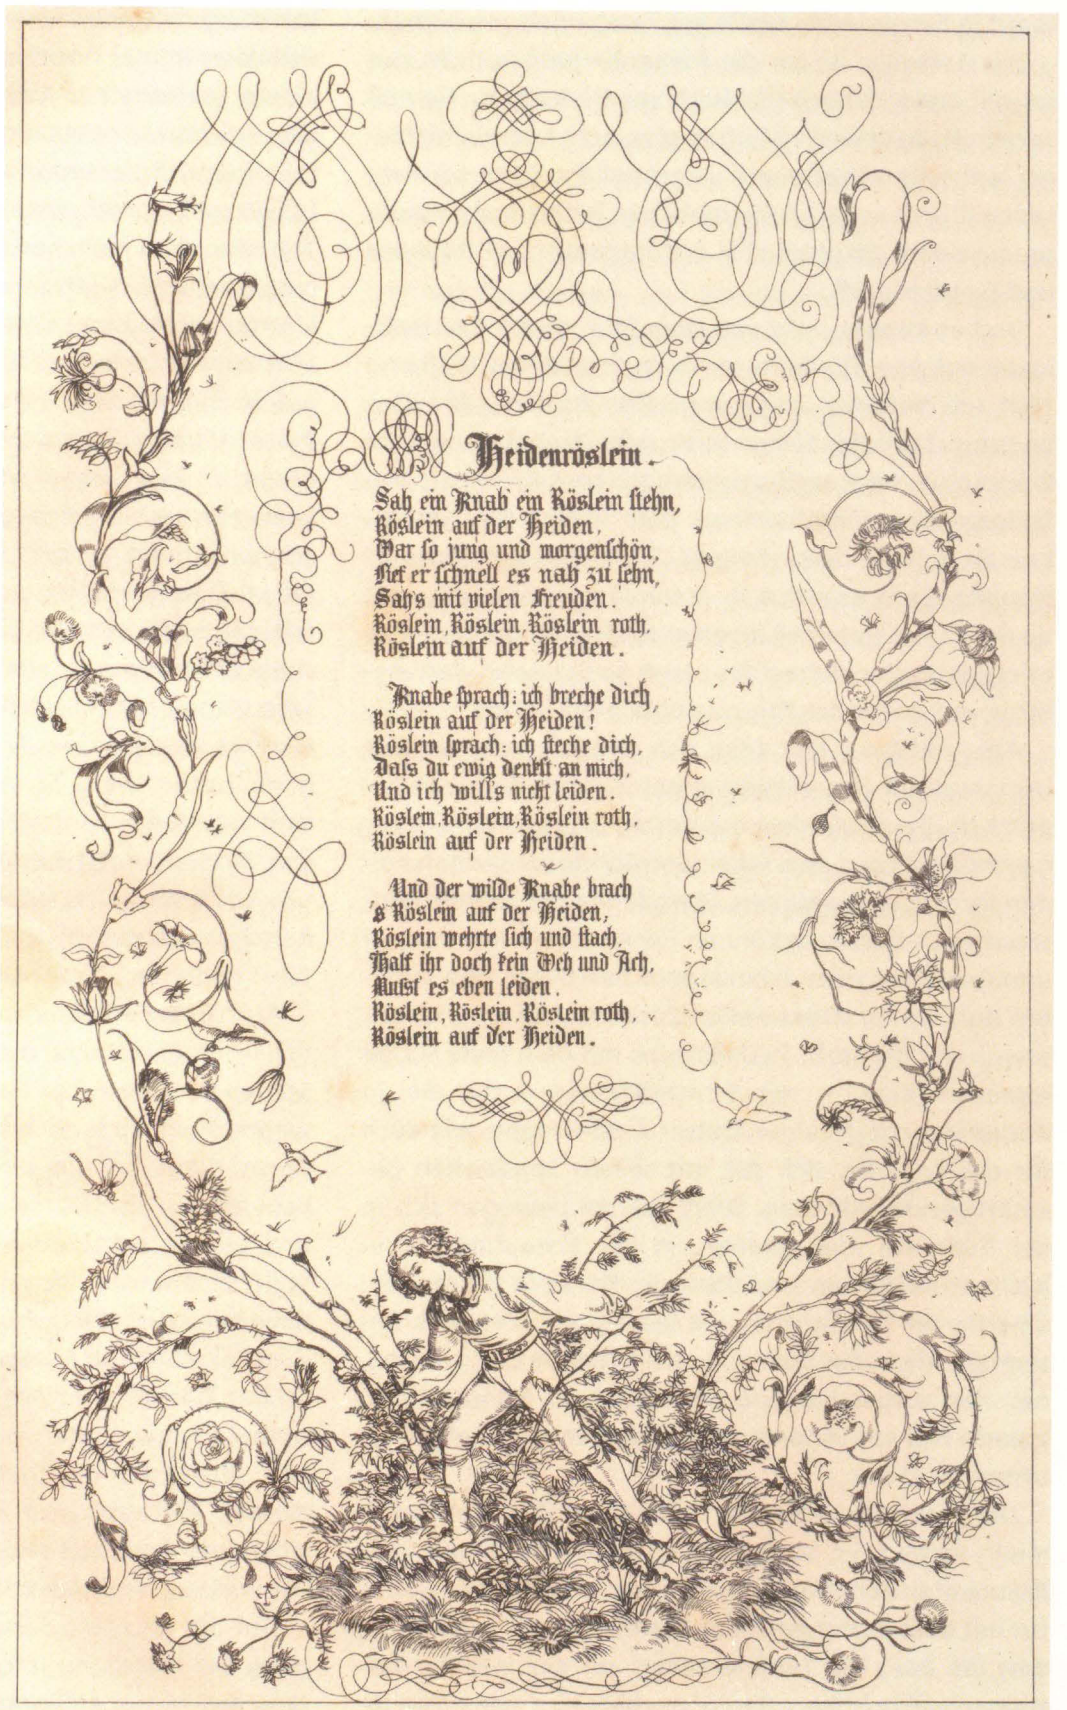 Heidenröslein.
Sah ein Knab' ein Röslein stehn,
Röslein auf der Heiden,
War so jung und morgenschön,
Lief er schnell es nah zu sehn,
Sah's mit vielen Freuden.
Röslein, Röslein, Röslein roth,
Röslein auf der Heiden.
Knabe sprach: ich breche dich,
Röslein auf der Heiden!
Röslein sprach: ich steche dich,
Dass du ewig denkst an mich,
Und ich will's nicht leiden.
Röslein, Röslein, Röslein roth,
Röslein auf der Heiden.
Und der wilde Knabe brach
's Röslein auf der Heiden;
Röslein wehrte sich und stach,
Half ihr doch kein Weh und Ach,
Musst es eben leiden.
Röslein, Röslein, Röslein roth,
Röslein auf der Heiden.